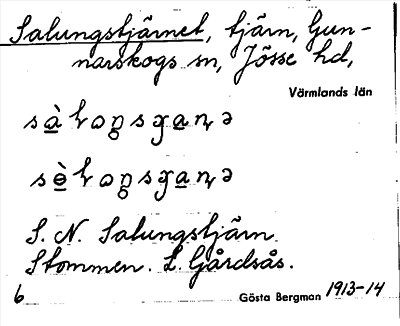 Salungstjärnet, tjärn, Gun-
narskogs sn, Jösse hd,
Värmlands län
S. N. Salungstjärn.
Stommen. L. Gårdsås.
6 Gösta Bergman 1913-14